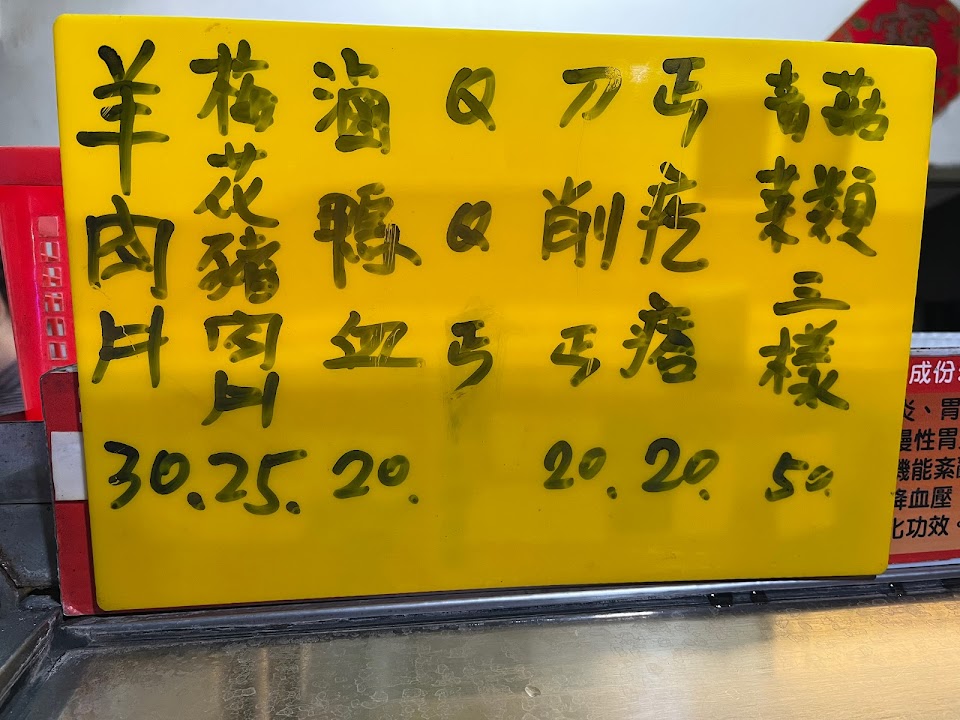 羊肉片 30.
梅花豬肉片 25.
滷鴨血 20.
QQ丐
刀削丐 20.
丐疙瘩 20.
青菜
菇類
三樣 50.
成份:
炎、胃
慢性胃
機能紊
降血壓
化功效。